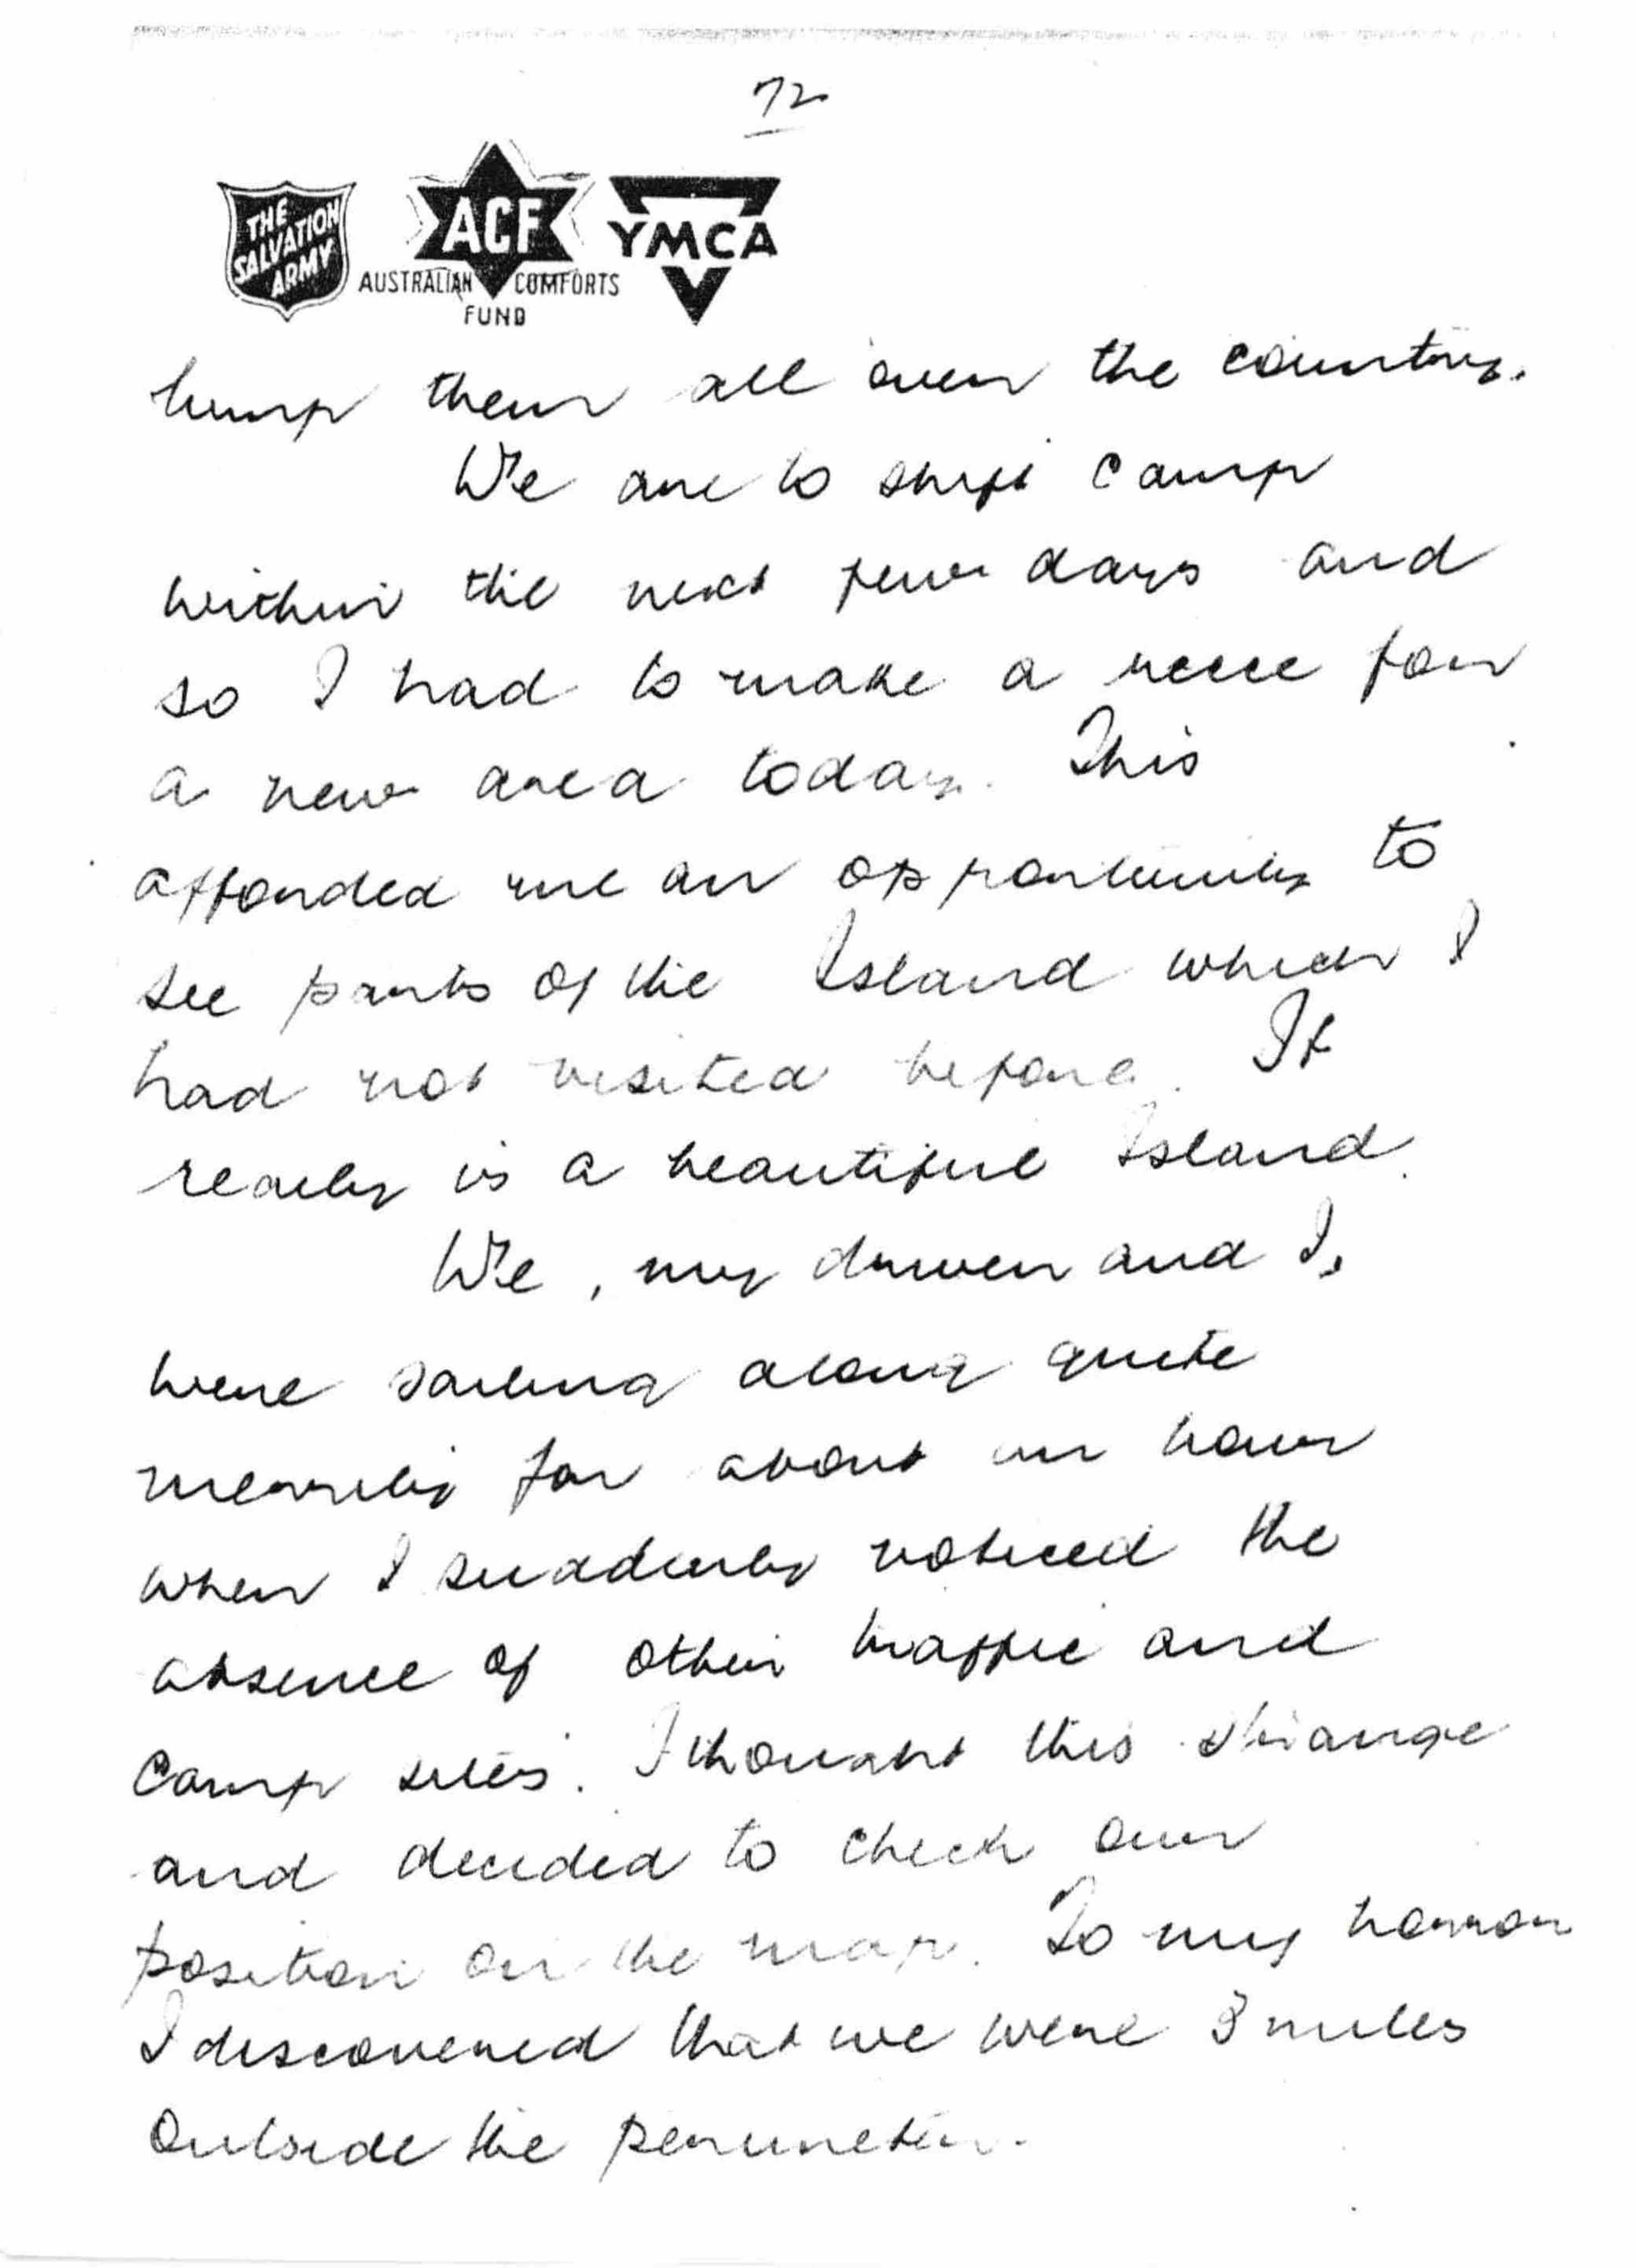 72
THE SALVATION ARMY
ACF
AUSTRALIAN COMFORTS
FUND
YMCA
hump them all over the country.
We are to shift camp
within the next few days and
so I had to make a recce for
a new area today. This
afforded me an opportunity to
see parts of the Island which I
had not visited before. It
really is a beautiful Island.
We, my driver and I,
were sailing along quite
merrily for about an hour
when I suddenly noticed the
absence of other traffic and
camp sites. I thought this strange
and decided to check our
position on the map. To my horror
I discovered that we were 3 miles
outside the perimeter.